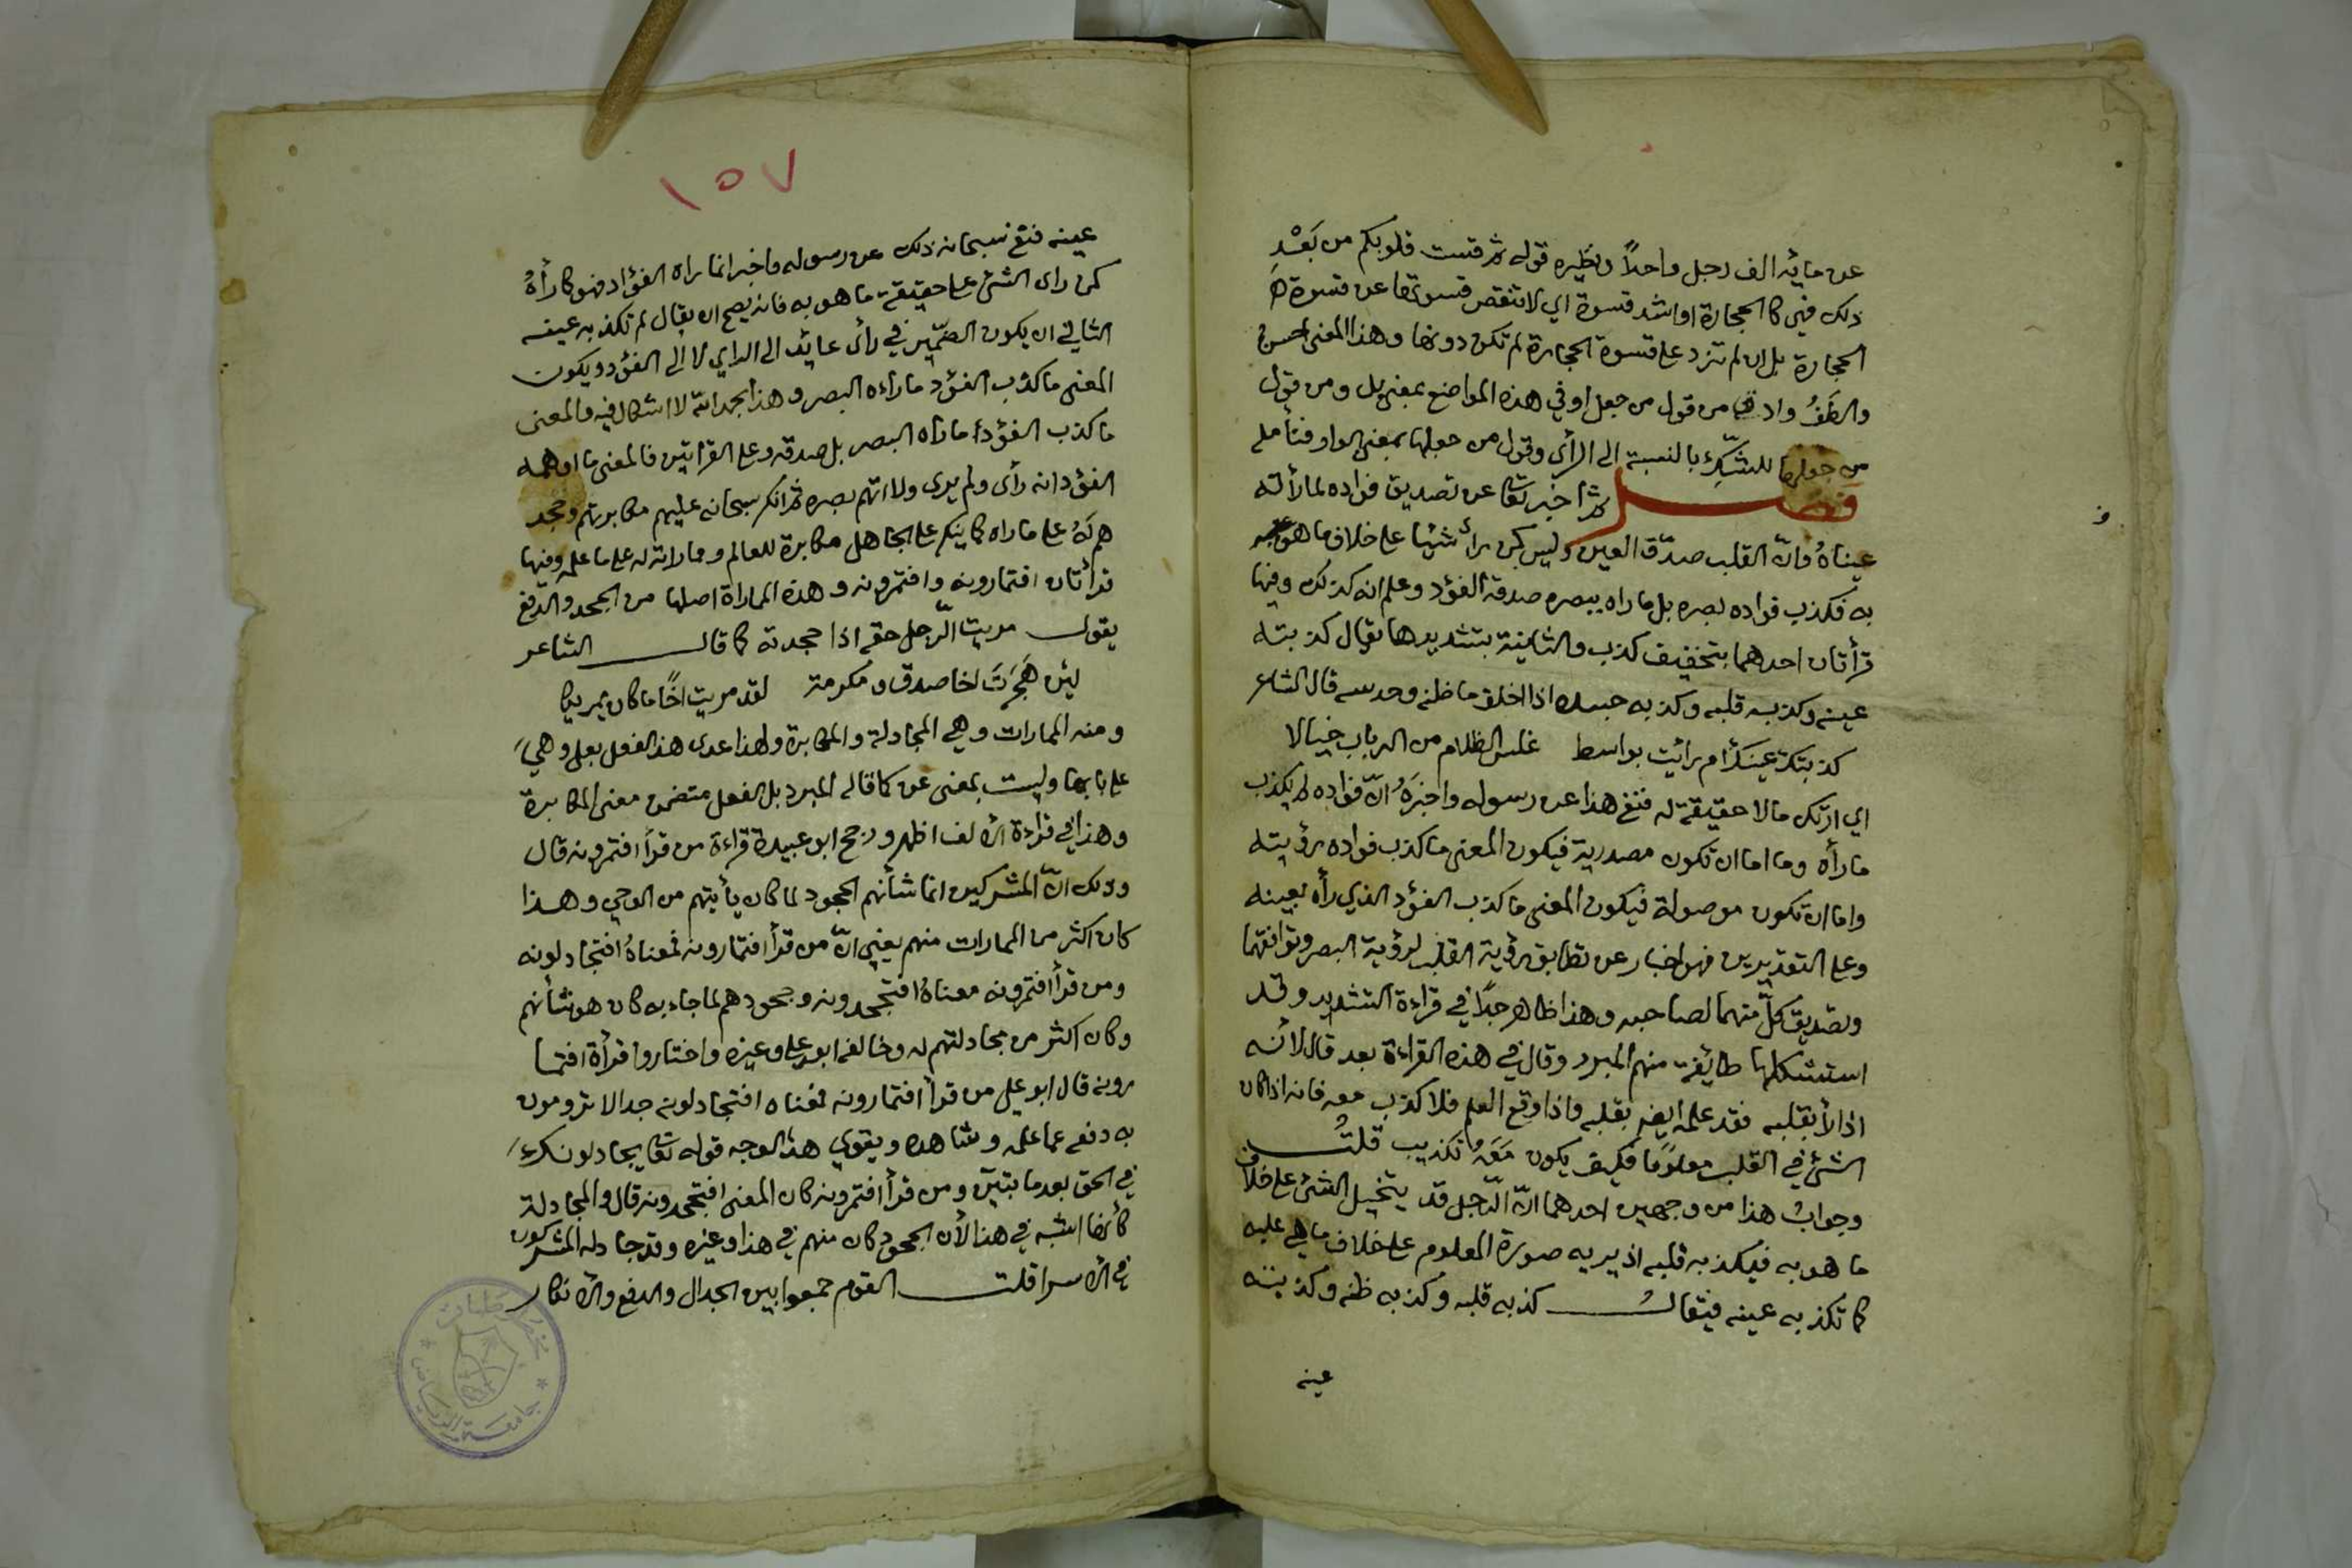 عن مايه الف رجل واحداً ونظيره قوله ثم قست قلوبكم من بَعْد
ذلك فهي كا الحجارة او اشد قسوة اي لا تنقص قسوتها عن قسوة هَ
الحجارة بل ان لم تزد على قسوة الحجارة لم تكن دونها وهذا المعنى احسن
والطف وادق من قول من جعل او في هذه المواضع بمعنى بل ومن قول
من جعلها للتشكيك بالنسبة الى الرأي وقول من جعلها بمعنى الواو فتأمله
فصل ثم اخبر تعا عن تصديق فواده لما رأته
عيناهُ وانّ القلب صدّق العين وليس كمن رأ شيئا على خلاف ما هو
به فكذب فواده بصره بل ما راه ببصره صدقه الفؤد وعلم انه كذلك وفيها
قرأتان احدهما بتخفيف كذب والثانية بتشديدها يقال كذبته
عينه وكذبه قلبه وكذبه جسده اذا اخلف ما ظنه وحدسه قال الشاعر
كذبتك عينك أم رائيت بواسط غلس الظلام من الرباب خيالا
اي ارتك مالا حقيقة له فنفى هذا عن رسوله واخبَرَهُ انّ فؤاده لم يكذب
ما رأه وما اما ان تكون مصدرية فيكون المعنى ما كذب فواده رؤيته
واما ان تكون موصولة فيكون المعنى ما كذب الفؤد الذي رأه بعينه
وعلى التقديرين فهو اخبار عن تطابق رؤية القلب لرؤية البصر وتوافقهما
وتصديق كلّ منهما لصاحبه وهذا ظاهر جدًا في قراءة التشديد وقد
استشكلها طايفة منهم المبرد وقال في هذه القراءة بعد قال لأنه
اذا رأ بقلبه فقد علمه ايضا بقلبه واذا وقع العلم فلا كذب معه فانه اذا كان
الشئ في القلب معلومًا فكيف يكون مَعَهُ تكذيب قلتُ
وجوابُ هذا من وجهين احدهما انّ الرّجل قد يتخيل الشئ على خلاف
ما هو به فيكذبه قلبه اذ يريه صورة المعلوم على خلاف ما هي عليه
كما تكذبه عينه فيقالُ كذبه قلبه وكذبه ظنه وكذبته
عينه
١٥٧
عينه فنفى سبحانه ذلك عن رسوله واخبر انما راه الفؤاد فهو كا رأهُ
كمن راى الشئ على حقيقة ما هو به فانه يصح ان يقال لم تكذبه عينه
الثاني ان يكون الضّمير في رأى عايد الى الراي لا الى الفؤد ويكون
المعنى ما كذب الفؤد ما رأه البصر وهذا بحمد الله لا اشكال فيه والمعنى
ما كذب الفؤد أما راه البصر بل صدقه وعلى القراتين فالمعنى ما اوهمه
الفؤد انه رأى ولم يرى ولا اتهم بصره ثم انكر سبحانه عليهم مكابرتهم وجحد
هم لهُ على ما راه كما ينكر على الجاهل مكابرة للعالم ومماراته له على ما علمه وفيها
قرأتان افتمارونه وافتمرونه وهذه المماراة اصلها من الجحد والدفع
يقول مريت الرّجل حقه اذا جحدته كما قال الشاعر
لئن هَجَرَتَ اخا صدق ومكرمة لقد مريت اخًا ما كان يمريكا
ومنه الممارات وهي المجادلة والمكابرة ولهذا عدى هذا الفعل بعلى وهيَ
على بابها وليست بمعنى عن كما قاله المبرد بل الفعل متضمن معنى المكابرة
وهذا في قراءة الألف اظهر ورجح ابو عبيدة قراءة من قرأ افتمرونه قال
وذلك انّ المشركين انما شأنهم الجحود لما كان يأتيهم من الوحي وهذا
كان اكثر من الممارات منهم يعني انّ من قرأ افتمارونه فمعناهُ افتجادلونه
ومن قرأ افتمرونه معناهُ افتجحدونه وجحودهم لما جاء به كان هو شأنهم
وكان اكثر من مجادلتهم له وخالفه ابو على وغيره واختاروا قرأة افتما
رونه قال ابو علي من قرأ افتمارونه فمعناه افتجادلونه جدالا ترومون
به دفعه عما علمه وشاهده ويقوي هذا الوجه قوله تعا يجادلونك
في الحق بعد ما تبيّن ومن قرأ افتمرونه كان المعنى افتجحدونه قال والمجادلة
كأنها اشبه في هذا لأن الجحود كان منهم في هذا وغيره وقد جادله المشركون
في الأسرا قلت القوم جمعوا بين الجدال والدفع والأنكار